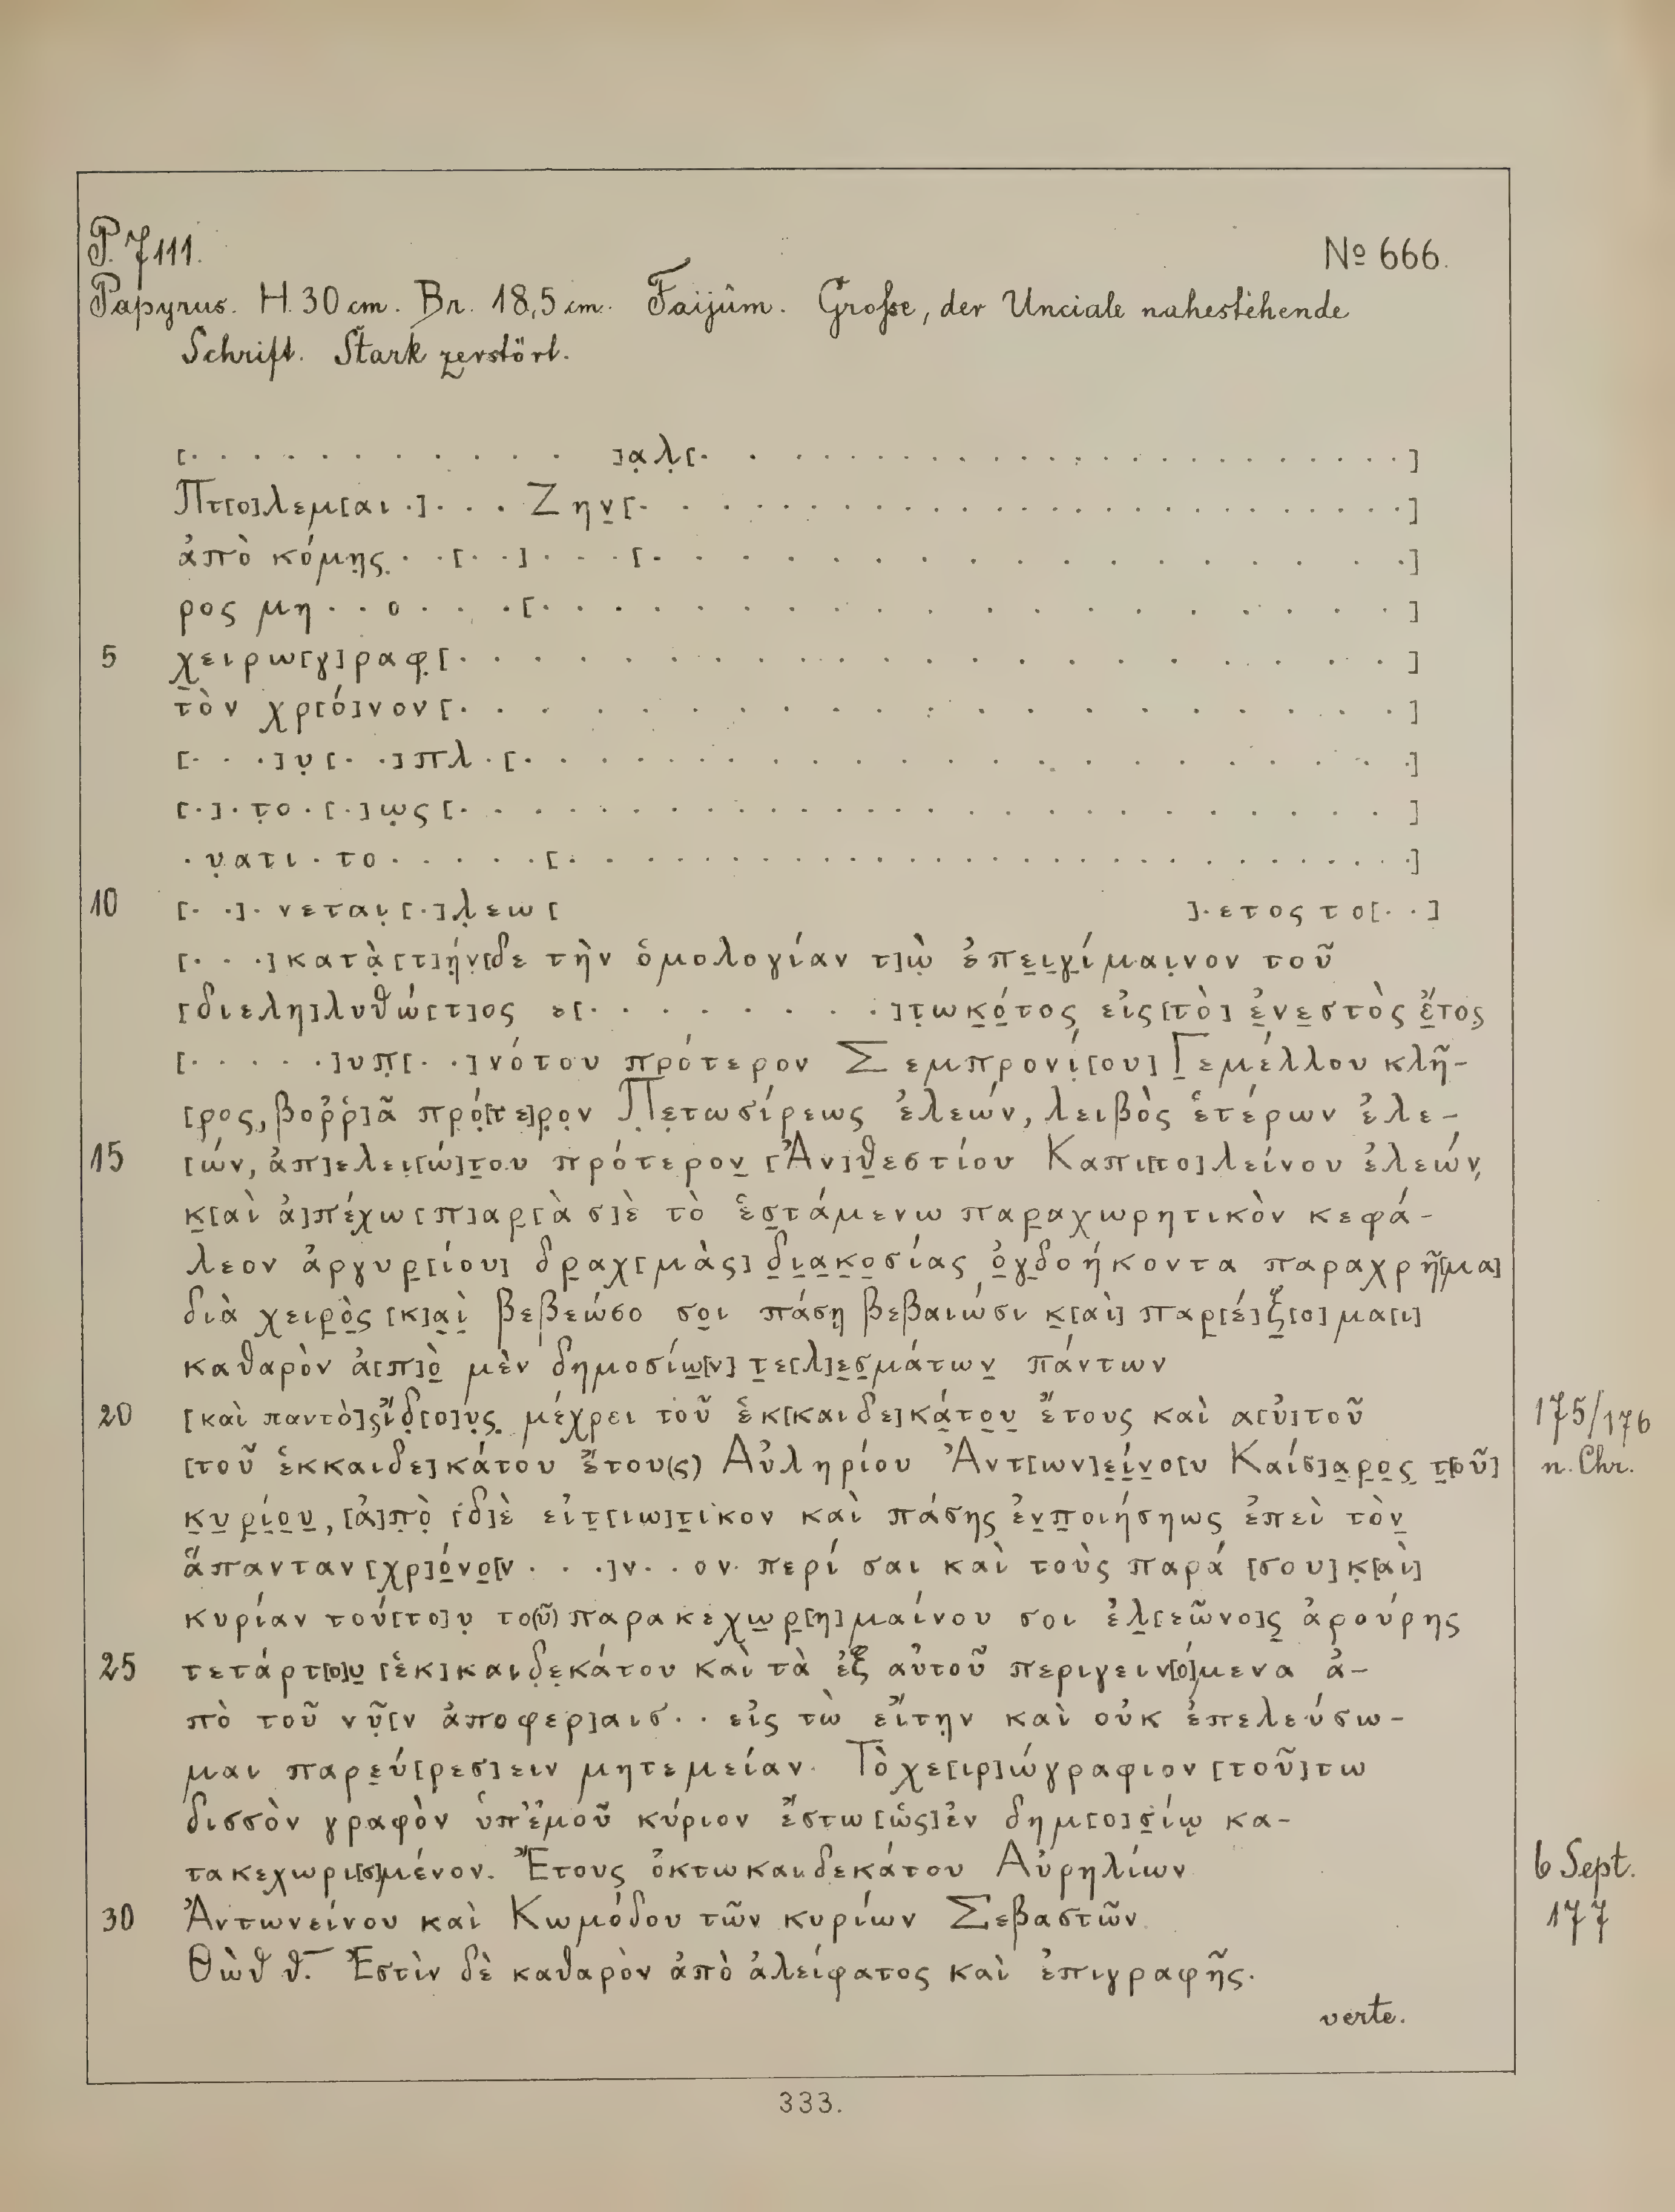 P. 7111.
No 666.
Papyrus. H. 30 cm. Br. 18,5 cm. Faijûm. Große, der Unciale nahestehende
Schrift. Stark zerstört.
[. . . . . . . . . . . ]α̣λ̣[. . . . . . . . . . . . . . . . . . . .]
Πτ[ο]λεμ[αι .]. . . Ζην̣[. . . . . . . . . . . . . . . . . . . .]
ἀπὸ κόμη̣ς̣. . [. . ] . . . [. . . . . . . . . . . . . .]
ρος μη . . ο . . . [. . . . . . . . . . . . . . . . .]
5 χ̣ειρω[γ]ραφ̣[. . . . . . . . . . . . . . . . . . . .]
τὸν χρ[ό]νον[. . . . . . . . . . . . . . . . . . . .]
[. . .]υ̣[. .]πλ . [. . . . . . . . . . . . . . . . . .]
[.] . τ̣ο . [.]ω̣ς[. . . . . . . . . . . . . . . . . . .]
. υ̣ατι . το . . . . . [. . . . . . . . . . . . . . . . . .]
10 [. .]. νεται̣[.]λ̣εω[ ]. ετος το[. .]
[. . .]κατὰ̣[τ]ή̣ν̣[δε τὴν ὁμολογίαν τ]ὼ̣ ἐπε̣ι̣γ̣ίμαι̣νον τοῦ
[διελη]λυθώ[τ]ος ε[. . . . . . . .]τ̣ωκ̣ό̣τος̣ εἰς[τὸ] ἐ̣νε̣στὸς ἔ̣τος̣
[. . . . .]υπ̣[. .]νότου πρότερον Σεμπρονί̣[ου] Γ̣εμέλλου κλῆ-
[ρος, βορ̣ρ]ᾶ πρό̣[τε]ρ̣ο̣ν Π̣ετ̣ωσίρ̣εως ἐλεών, λειβὸς ἑτέρων ἐλε-
15 [ών, ἀπ]ελει̣[ώ]τ̣ου πρότερον̣ [Ἀν]θ̣εστίου Καπι[το]λείνου ἐλεών,
κ̣[αὶ ἀ]πέ̣χω [π]αρ[ὰ σ]ὲ τὸ ἑσ̣τάμενω παρ̣αχωρητικὸν κεφά-
λεον ἀργυρ̣[ίου] δρ̣αχ[μὰς] δ̣ι̣α̣κ̣ο̣σίας̣ ὀ̣γ̣δ̣οήκοντα παραχρῆ̣[μα]
διὰ χειρ̣ὸ̣ς̣ [κ]α̣ὶ̣ βεβεώσο σο̣ι πάσῃ βεβαιώσι κ̣[αὶ] παρ̣[έ]ξ̣[ο]μα[ι]
καθαρὸν ἀ[π]ὸ̣ μὲν δημοσίω̣[ν] τ̣ε[λ]ε̣σ̣μάτων̣ πάντων
20 [καὶ παντὸ]ς̣ ἴ̣δ̣[ο]ύ̣ς̣ μέχρει τοῦ ἑκ[καιδε]κ̣ά̣το̣υ̣ ἔτους καὶ α[ὐ]τοῦ
[τοῦ ἑκκαιδε]κάτου ἔτου(ς) Αὐληρίου Ἀντ[ων]ε̣ί̣ν̣ο[υ Καίσ]α̣ρ̣ο̣ς̣ τ̣[οῦ]
κ̣υ̣ρ̣ί̣ο̣υ̣, [ἀ]π̣ὸ̣ [δ]ὲ εἰτ̣[ιω]τ̣ικον καὶ πάσης ἐν̣π̣οιήσηως ἐπεὶ τὸν̣
ἅπανταν [χρ]ό̣νο̣[ν . . .]ν . . ον περί σαι καὶ τοὺς παρά [σου] κ̣[αὶ]
κυρίαν τού[το]υ̣ το(ῦ) παρακεχω̣ρ̣[η]μαίνου σοι ἐλ̣[εῶνο]ς̣ ἀρούρης
25 τετάρτ[ο]υ̣ [ἑκ]καιδ̣ε̣κάτου καὶ τὰ ἐξ αὐτοῦ περιγειν[ο]μενα ἀ-
πὸ τοῦ νῦ̣[ν ἀποφερ]αισ . . εἰς τὼ εἴτην καὶ οὐκ ἐπελεύσω-
μαι παρε̣ύ[ρεσ]ειν μητεμείαν. Τὸ χε[ιρ]ώγραφιον [τοῦ]τω
δισσὸν γραφὸν ὑπ’ἐμοῦ κύριον ἔστω [ὡς] ἐν δημ[ο]σ̣ίῳ κα-
τακεχωρι[σ]μένον. Ἔτους ὀκτωκαιδεκάτου Αὐρηλίων
30 Ἀντωνείνου καὶ Κωμόδου τῶν κυρίων Σεβαστῶν
Θὼθ θ̅. Ἐστὶν δὲ καθαρὸν ἀπὸ ἀλείφατος καὶ ἐπιγραφῆς.
verte.
175/176
n. Chr.
6 Sept.
177
333.